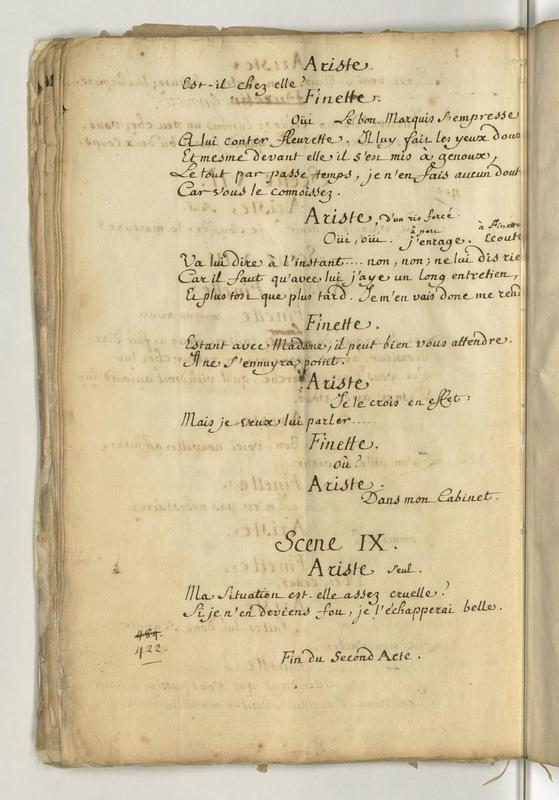 Ariste.
Est-il chez elle?
Finette.
Oüi. Le bon Marquis s'empresse
A lui conter fleurette. Il luy fait les yeux doux
Et mesme devant elle il s'est mis à genoux,
Le tout par passe temps, je n'en fais aucun dout
Car vous le connoissez.
Ariste, d'un ris forcé.
à part à Finette
Oüi, oüi. j'enrage. Ecoute
Va lui dire à l'instant.... non, non; ne lui dis rie
Car il faut qu'avec lui j'aye un long entretien,
Et plus tost que plus tard. Je m'en vais donc me rend
Finette.
Estant avec Madame, il peut bien vous attendre.
Il ne s'ennuyra point.
Ariste
Je le crois en effet:
Mais je veux lui parler.....
Finette.
où?
Ariste.
Dans mon Cabinet.
Scene IX.
Ariste seul.
Ma Situation est-elle assez cruelle?
Si je n'en deviens fou, je l'échapperai belle.
484
422.
Fin du Second Acte.